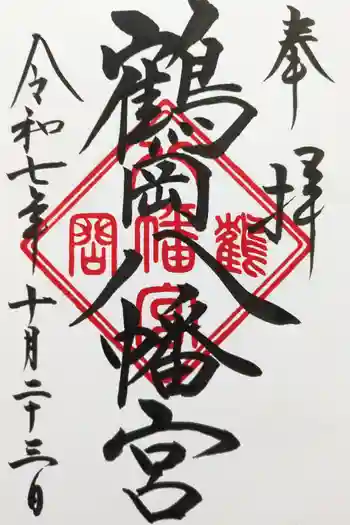 奉拝
鶴岡八幡宮
令和七年十月二十三日
鶴
岡
八幡宮